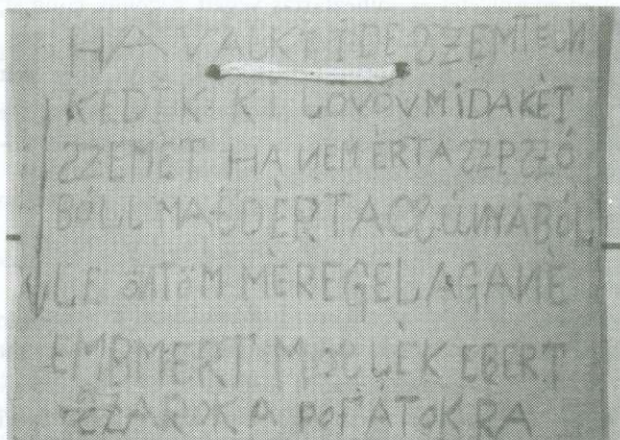 HA VALKI IDE SZEMTELN
KEDIK KI LÖVÖVMIDAKÉT
SZEMÉT HA NEM ÉRTA SZPSZÓ
BÓLL MAJDÉRT ACSÚNÁBÓL
LE ÖNTÖM MÉREGELAGANÉ
EMBMERT MOSLÉK EBERT
SZAROK A POFÁTOK RA